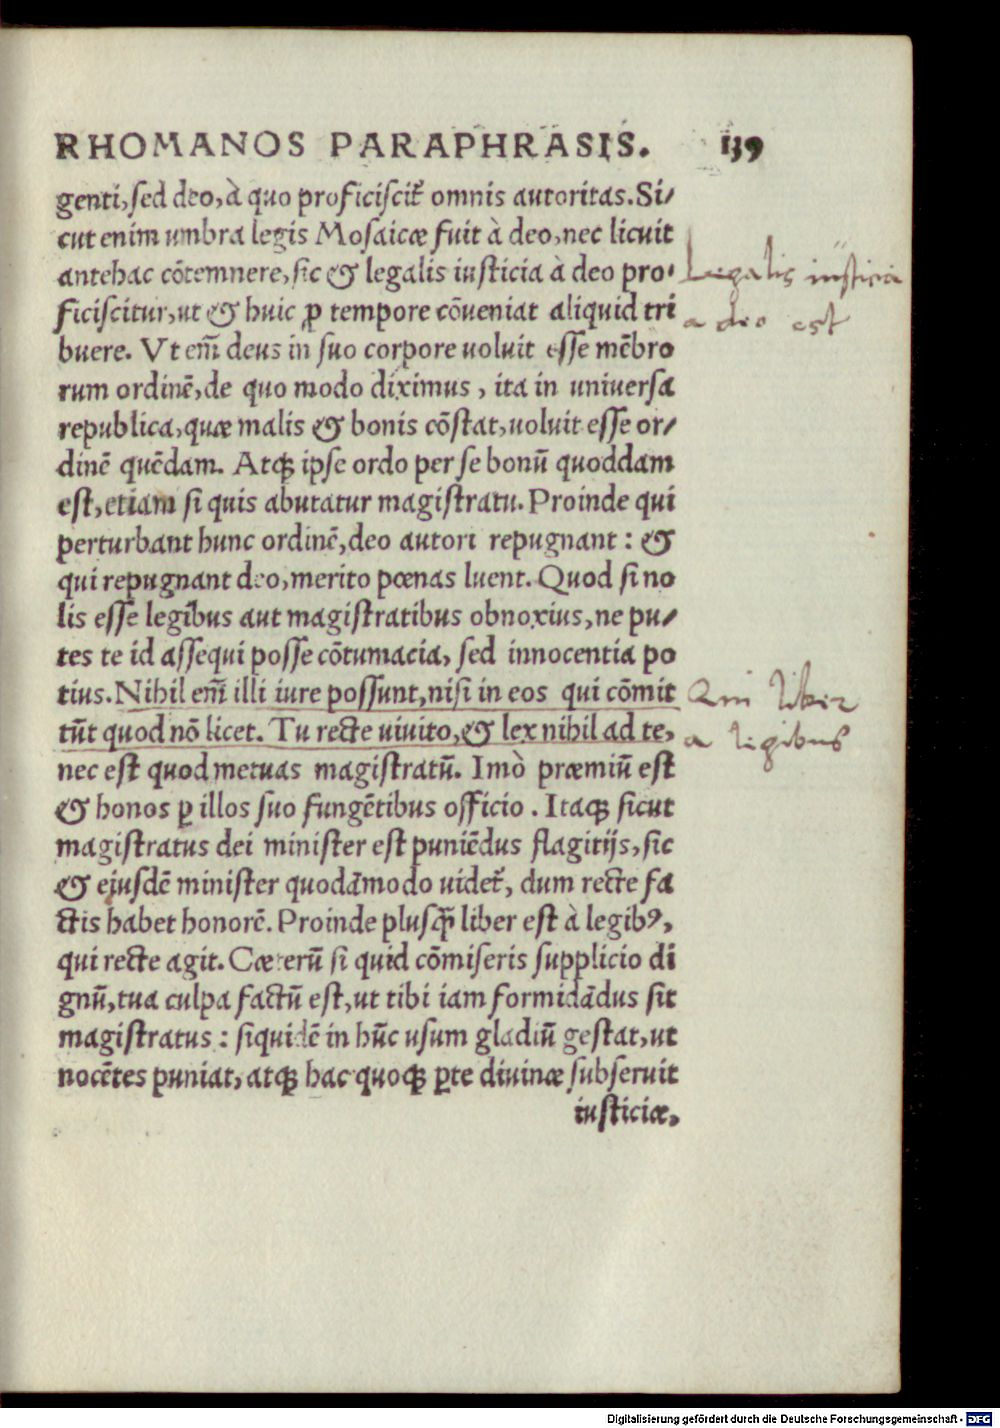 RHOMANOS PARAPHRASIS. 139
genti, sed deo, à quo proficiscit᷑ omnis autoritas. Si/
cut enim umbra legis Mosaicæ fuit à deo, nec licuit
antehac cōtemnere, sic & legalis iusticia à deo pro/
ficiscitur, ut & huic ꝓ tempore cōueniat aliquid tri
buere. Vt em̄ deus in suo corpore uoluit esse mēbro
rum ordinē, de quo modo diximus, ita in uniuersa
republica, quæ malis & bonis cōstat, uoluit esse or/
dinē quēdam. Atqꝫ ipse ordo per se bonū quoddam
est, etiam si quis abutatur magistratu. Proinde qui
perturbant hunc ordinē, deo autori repugnant: &
qui repugnant deo, merito pœnas luent. Quod si no
lis esse legibus aut magistratibus obnoxius, ne pu/
tes te id assequi posse cōtumacia, sed innocentia po
tius. Nihil em̄ illi iure possunt, nisi in eos qui cōmit
tūt quod nō licet. Tu recte uiuito, & lex nihil ad te,
nec est quod metuas magistratū. Imò præmiū est
& honos ꝑ illos suo fungētibus officio. Itaqꝫ sicut
magistratus dei minister est puniēdus flagitijs, sic
& ejusdē minister quodāmodo uidet᷑, dum recte fa
ctis habet honorē. Proinde plusqꝫ̄ liber est à legibꝰ,
qui recte agit. Cæterū si quid cōmiseris supplicio di
gnū, tua culpa factū est, ut tibi iam formidādus sit
magistratus: siquidē in hūc usum gladiū gestat, ut
nocētes puniat, atqꝫ hac quoqꝫ ꝑte diuinæ subseruit
iusticiæ,
Legalis iusticia
a deo est
Qui liber
a legibus
Digitalisierung gefördert durch die Deutsche Forschungsgemeinschaft - DFG